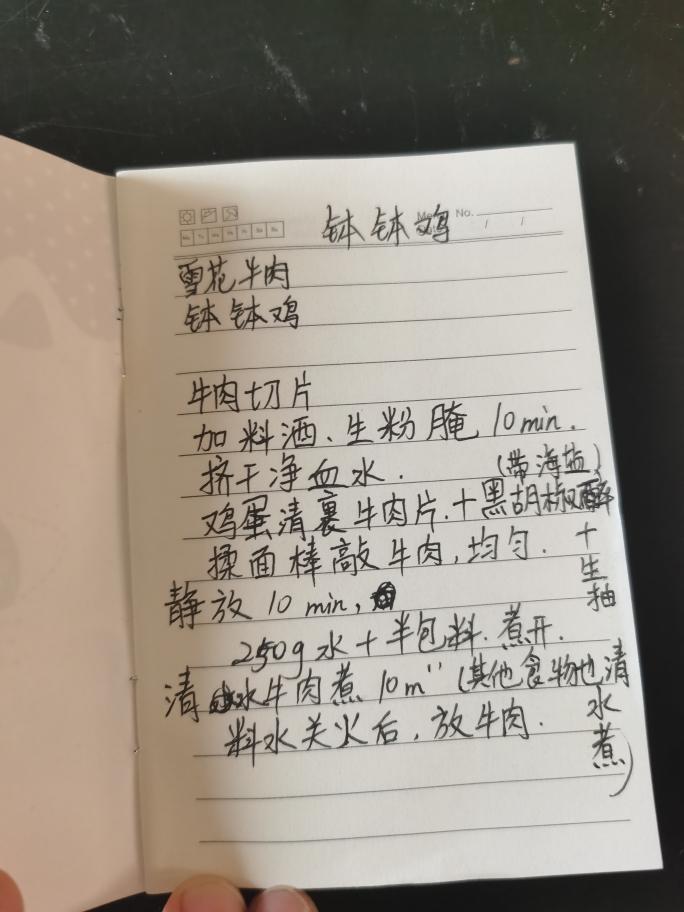 Me No.
钵钵鸡
/ /
雪花牛肉
钵钵鸡
牛肉切片
加料酒、生粉腌10min.
挤干净血水.
(带海盐)
鸡蛋清裹牛肉片.+黑胡椒碎
揉面棒敲牛肉,均匀.
+生抽
静放10min,
250g水+半包料.煮开.
清水牛肉煮10m''(其他食物也清水煮)
料水关火后,放牛肉.